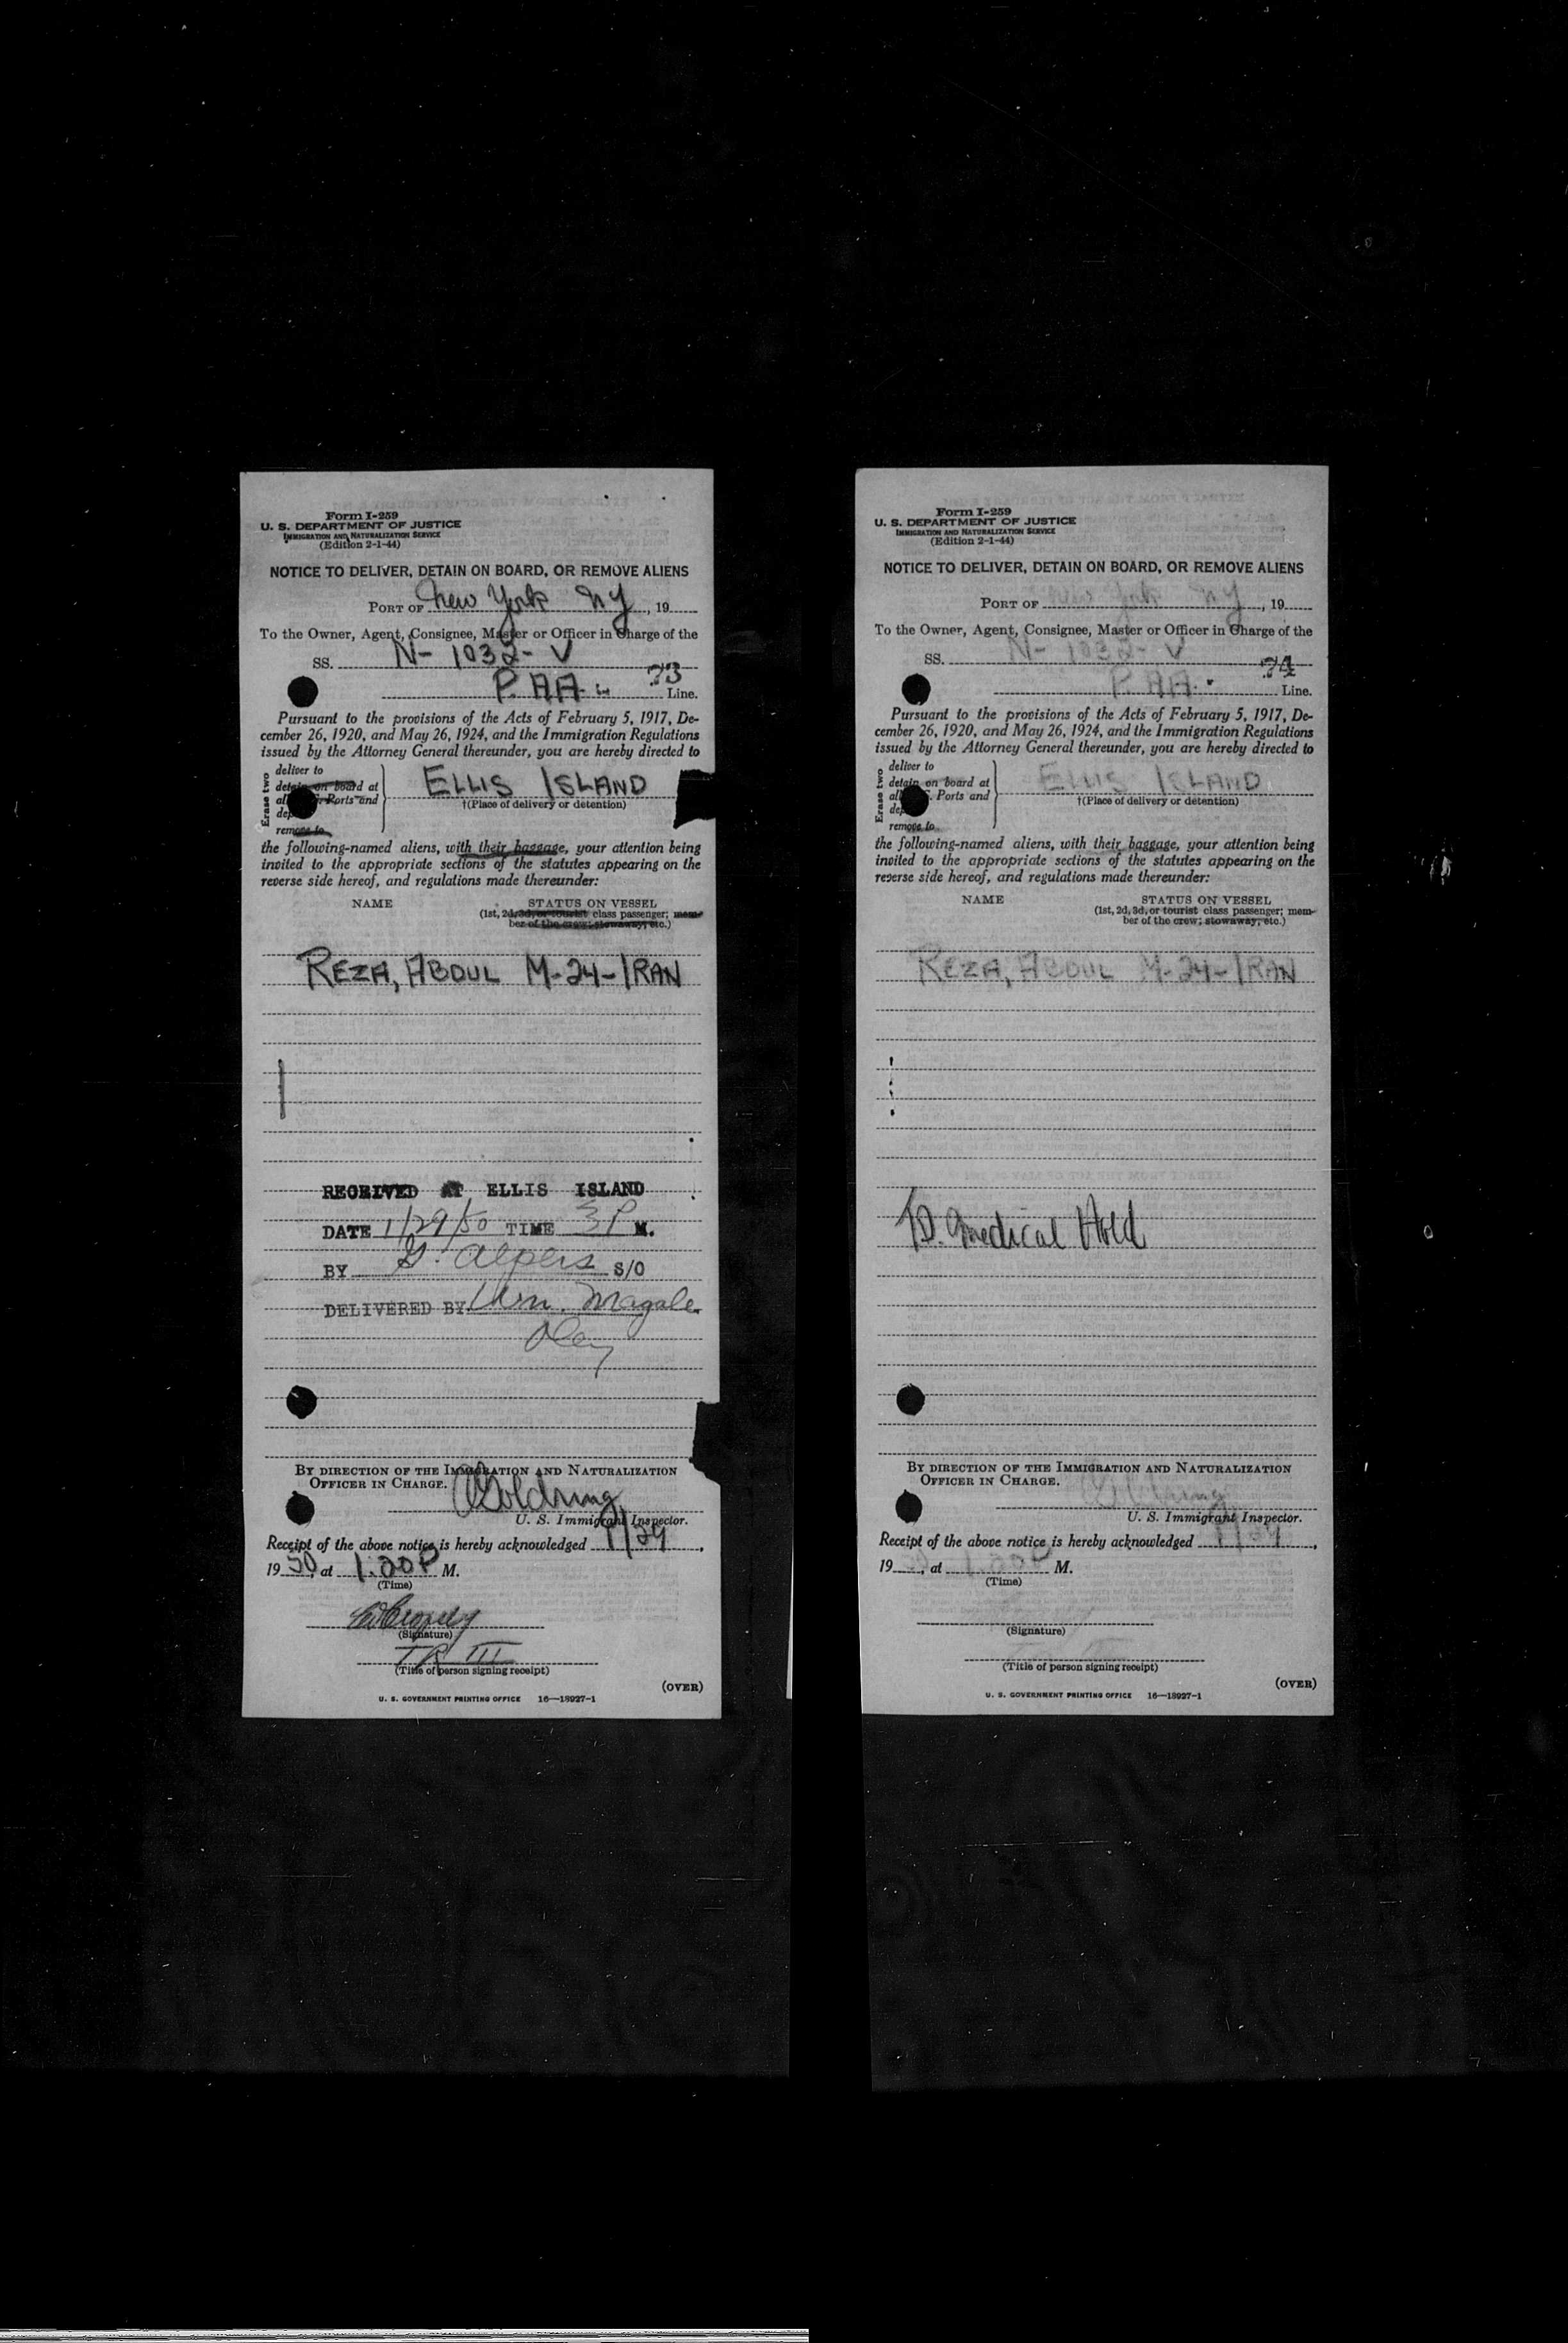 Form I-259
U. S. DEPARTMENT OF JUSTICE
IMMIGRATION AND NATURALIZATION SERVICE
(Edition 2-1-44)
NOTICE TO DELIVER, DETAIN ON BOARD, OR REMOVE ALIENS
PORT OF New York NY, 19
To the Owner, Agent, Consignee, Master or Officer in Charge of the
SS. N-1032-V
73
P.AA. Line.
Pursuant to the provisions of the Acts of February 5, 1917, De-
cember 26, 1920, and May 26, 1924, and the Immigration Regulations
issued by the Attorney General thereunder, you are hereby directed to
Erase two
deliver to
detain on board at
Ports and
remove to
ELLIS ISLAND
†(Place of delivery or detention)
the following-named aliens, with their baggage, your attention being
invited to the appropriate sections of the statutes appearing on the
reverse side hereof, and regulations made thereunder:
NAME STATUS ON VESSEL
(1st, 2d, 3d, or tourist class passenger; mem-
ber of the crew; stowaway, etc.)
REZA, ABDUL M-24-IRAN
RECEIVED AT ELLIS ISLAND
DATE 1/29/50 TIME 3 P M.
BY G. Alpers S/O
DELIVERED BY Wm. Magale
BY DIRECTION OF THE IMMIGRATION AND NATURALIZATION
OFFICER IN CHARGE.
Goldring
U. S. Immigrant Inspector.
Receipt of the above notice is hereby acknowledged 1/29,
19 50, at 1:20 P M.
(Time)
(Signature)
TR III
(Title of person signing receipt)
(OVER)
U. S. GOVERNMENT PRINTING OFFICE 16—18927-1
Form I-259
U. S. DEPARTMENT OF JUSTICE
IMMIGRATION AND NATURALIZATION SERVICE
(Edition 2-1-44)
NOTICE TO DELIVER, DETAIN ON BOARD, OR REMOVE ALIENS
PORT OF New York NY, 19
To the Owner, Agent, Consignee, Master or Officer in Charge of the
SS. N-1032-V
74
P.AA. Line.
Pursuant to the provisions of the Acts of February 5, 1917, De-
cember 26, 1920, and May 26, 1924, and the Immigration Regulations
issued by the Attorney General thereunder, you are hereby directed to
Erase two
deliver to
detain on board at
Ports and
remove to
ELLIS ISLAND
†(Place of delivery or detention)
the following-named aliens, with their baggage, your attention being
invited to the appropriate sections of the statutes appearing on the
reverse side hereof, and regulations made thereunder:
NAME STATUS ON VESSEL
(1st, 2d, 3d, or tourist class passenger; mem-
ber of the crew; stowaway, etc.)
REZA, ABDUL M-24-IRAN
TD. Medical Hold
BY DIRECTION OF THE IMMIGRATION AND NATURALIZATION
OFFICER IN CHARGE.
Goldring
U. S. Immigrant Inspector.
Receipt of the above notice is hereby acknowledged 1/29,
19 50, at 1:20 P M.
(Time)
(Signature)
(Title of person signing receipt)
(OVER)
U. S. GOVERNMENT PRINTING OFFICE 16—18927-1